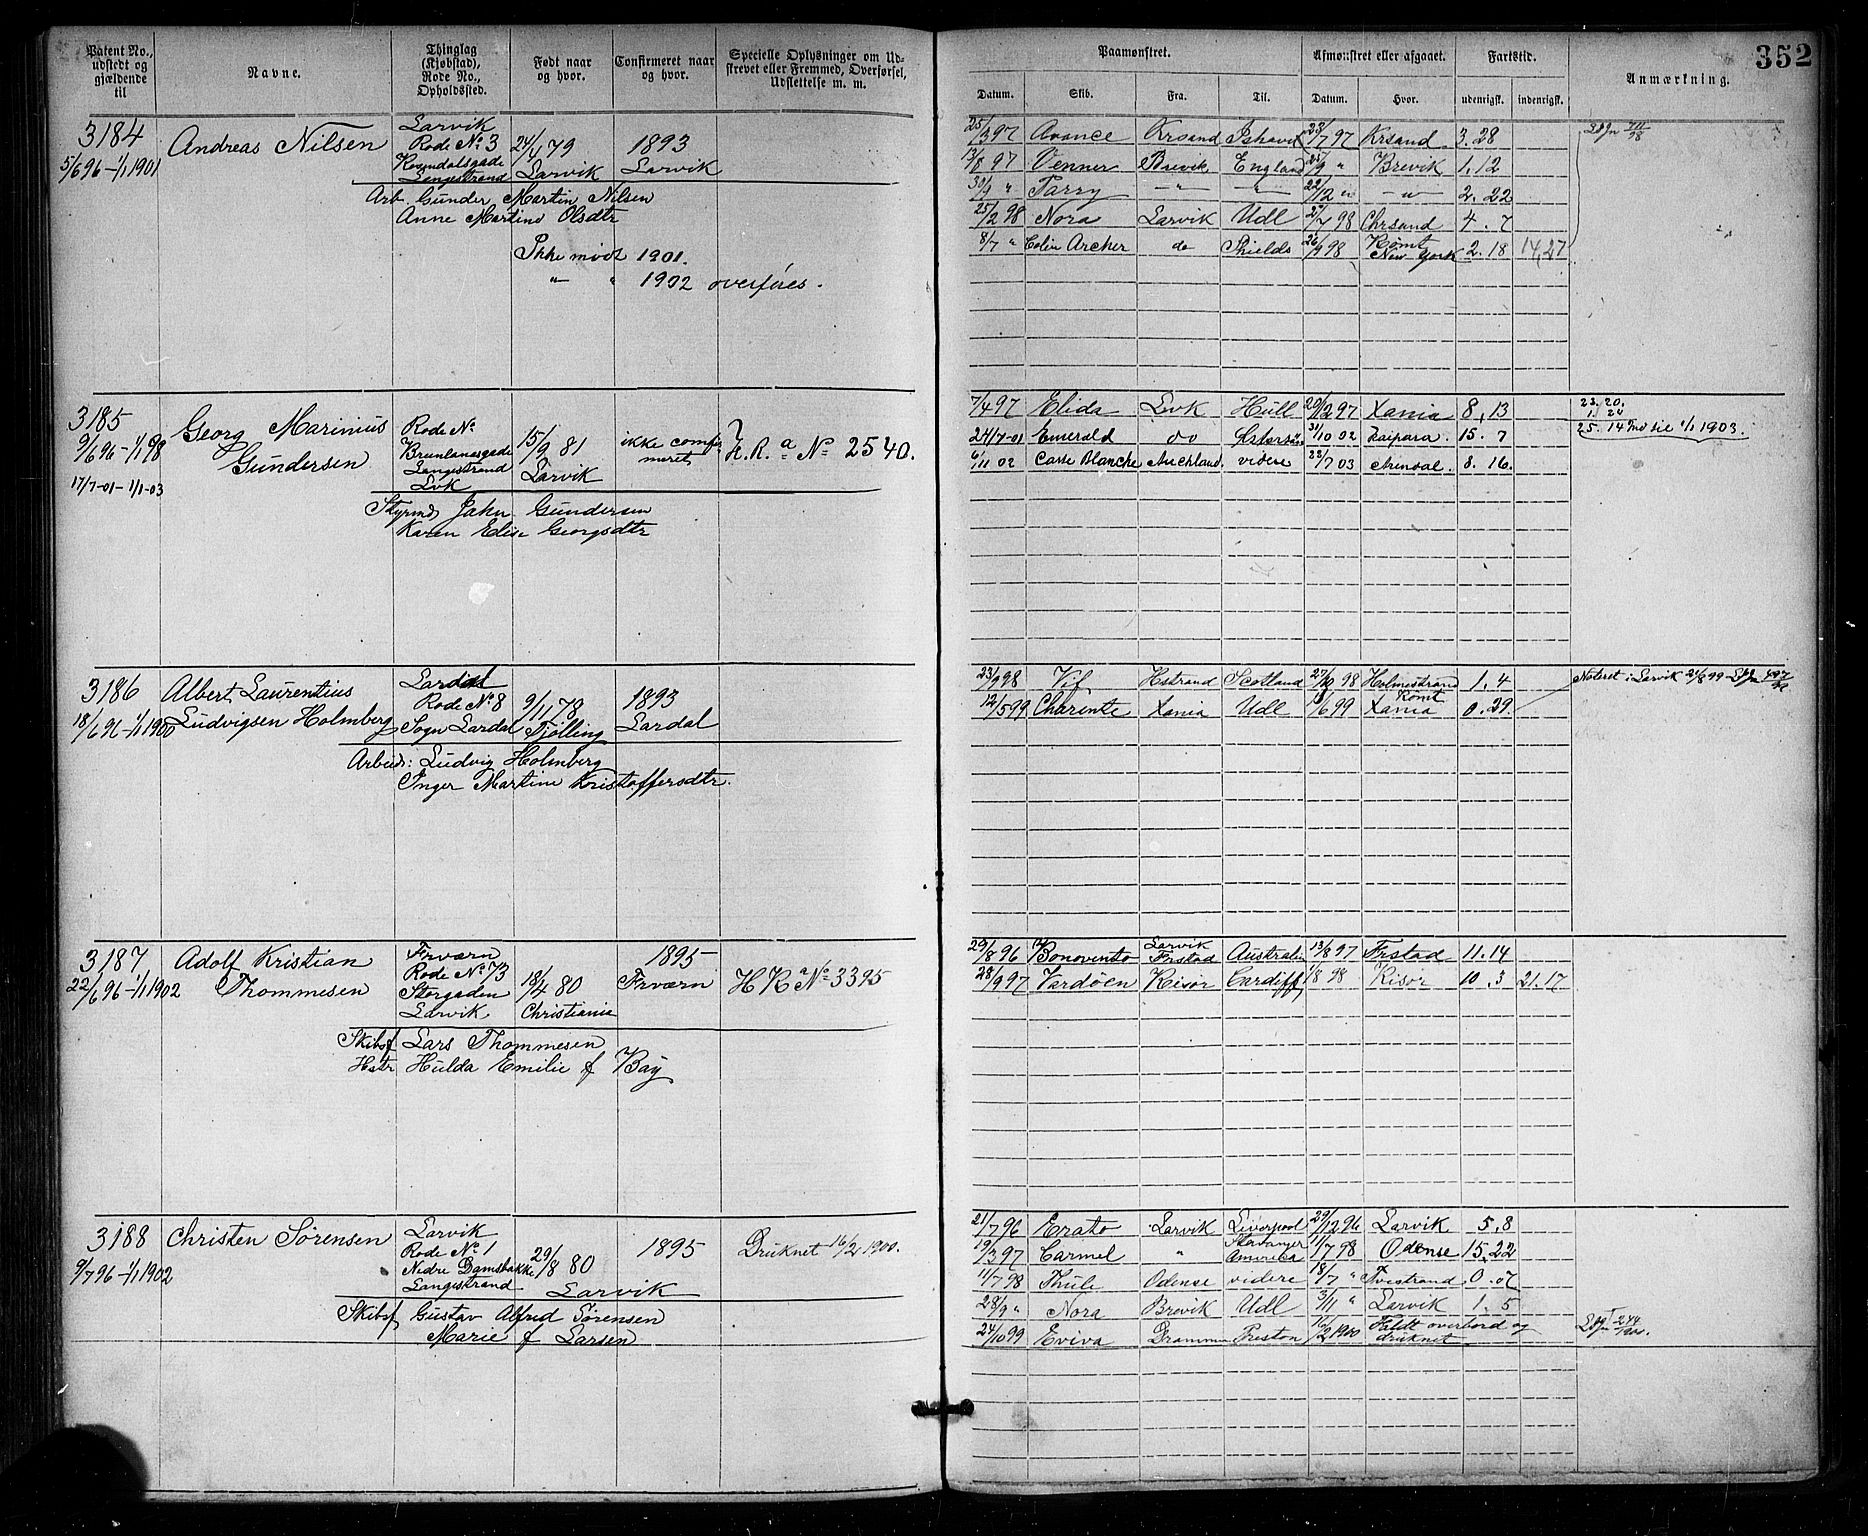 352
Patent No., udstedt og gjældende til
Navne.
Thinglag (Kjøbstad), Rode No., Opholdssted.
Født naar og hvor.
Confirmeret naar og hvor.
Specielle Oplysninger om Udskrevet eller Fremmed, Overførsel, Udslettelse m. m.
Paamønstret.
Afmønstret eller afgaaet.
Fartstid.
Anmærkning.
Datum. Skib. Fra. Til. Datum. Hvor. udenrigsk. indenrigsk.
3184 Andreas Nilsen Larvik
Rode No 3 24/1 79 1893
5/6 96 - 1/1 1901
Langestrand Larvik Larvik
Arb. Gunder Martin Nilsen
Anne Martine Olsdtr
Ikke mødt 1901.
" " 1902 overføres.
25/3 97 Avance Krsand Ishavet 23/7 97 Krsand 3. 28
13/8 97 Venner Brevik England 9 " Brevik 1. 12
" Tarry " " 22/12 " " 2. 22
25/2 98 Nora Larvik Udl 2/7 98 Chrsand 4. 7
8/7 " Colin Archer do Shields 26/9 98 Rømt New York 2. 18 14,27
3185 Georg Marinius
Gundersen
9/6 96 - 1/1 98
17/7-01 - 1/1-03
Rode No
Brunlanesgade
Langestrand
Lvk
15/9 81
Larvik
ikke comfirmeret
H. R. a No 2540.
Styrmd Jahn Gundersen
Karen Elise Georgsdtr
7/4 97 Elida Lvk Hull 20/12 97 Xania 8. 13
24/7-01 Emerald do 31/10 02 Kaipara. 15. 7
6/11 02 Casse Blanche Auckland videre 22/7 03 Arendal. 8. 16.
23. 20.
1. 24
25. 14 Ind til 1/1 1903.
3186 Albert Laurentius
Ludvigsen Holmberg
18/6 96 - 1/1 1900
Lardal
Rode No 8
Sogn Lardal
9/11 78
Tjølling
1893
Lardal
Arbeid: Ludvig Holmberg
Inger Martine Kristoffersdtr.
23/9 98 Vif Hstrand Scotland 27/10 98 Holmestrand 1. 4
12/5 99 Charente Xania Udl 18/6 99 Rømt Xania 0. 29.
Noteret i Larvik
3187 Adolf Kristian
Thommesen
22/6 96 - 1/1 1902
Frværn
Rode No 73
Storgaden
Larvik
18/4 80
Christiania
1895
Frværn
H R a No 3395
Skibsf Lars Thommesen
Hstr Hulda Emilie f Bay
29/8 96 Bonovento Larvik Frstad Australien 13/8 97 Frstad 11. 14
28/9 97 Vardöen Risør Cardiff 1/8 98 Risør 10. 3 21.17
3188 Christen Sørensen
9/7 96 - 1/1 1902
Larvik
Rode No 1
Nedre Damsbakke
Langestrand
29/8 80
Larvik
1895
Druknet 16/2 1900.
Skibsf Gustav Alfred Sørensen
Marie f Larsen
21/7 96 Erato Larvik Liverpool 29/12 96 Larvik 5. 8
19/3 97 Carmel " Stavanger America 11/7 98 Odense 15. 22
11/7 98 Thule Odense videre 18/7 " Tvestrand 0. 07
28/9 " Nora Brevik Udl 3/11 " Larvik 1. 5
24/10 99 Eviva Drammen Preston 16/2 1900 Faldt overbord og druknet